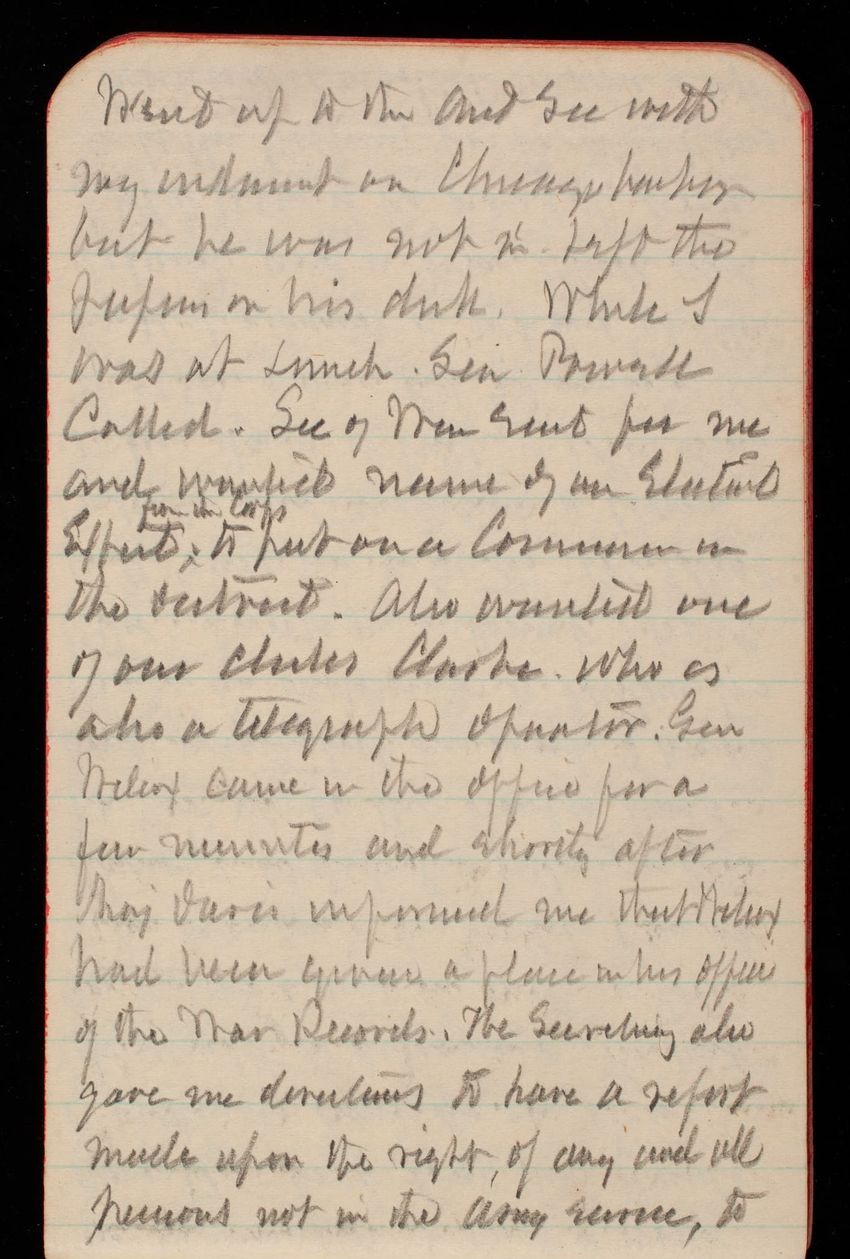 Went up to the Asst Sec with
my indorsmt on Chicago harbor
but he was not in. Left the
papers on his desk. While I
was at Lunch. Gen
Called. Sec of War sent for me
and wanted name of an Electrical
Expert, from our Corps to put on a Commission in
the district. Also wanted one
of our clerks Clarke. who is
also a telegraph operator. Gen
Wilcox came in the office for a
few minutes and shortly after
Maj Davis informed me that Wilcox
had been given a place in his office
of the War Records. The Secretary also
gave me directions to have a report
made upon the right, of any and all
persons not in the army service, to